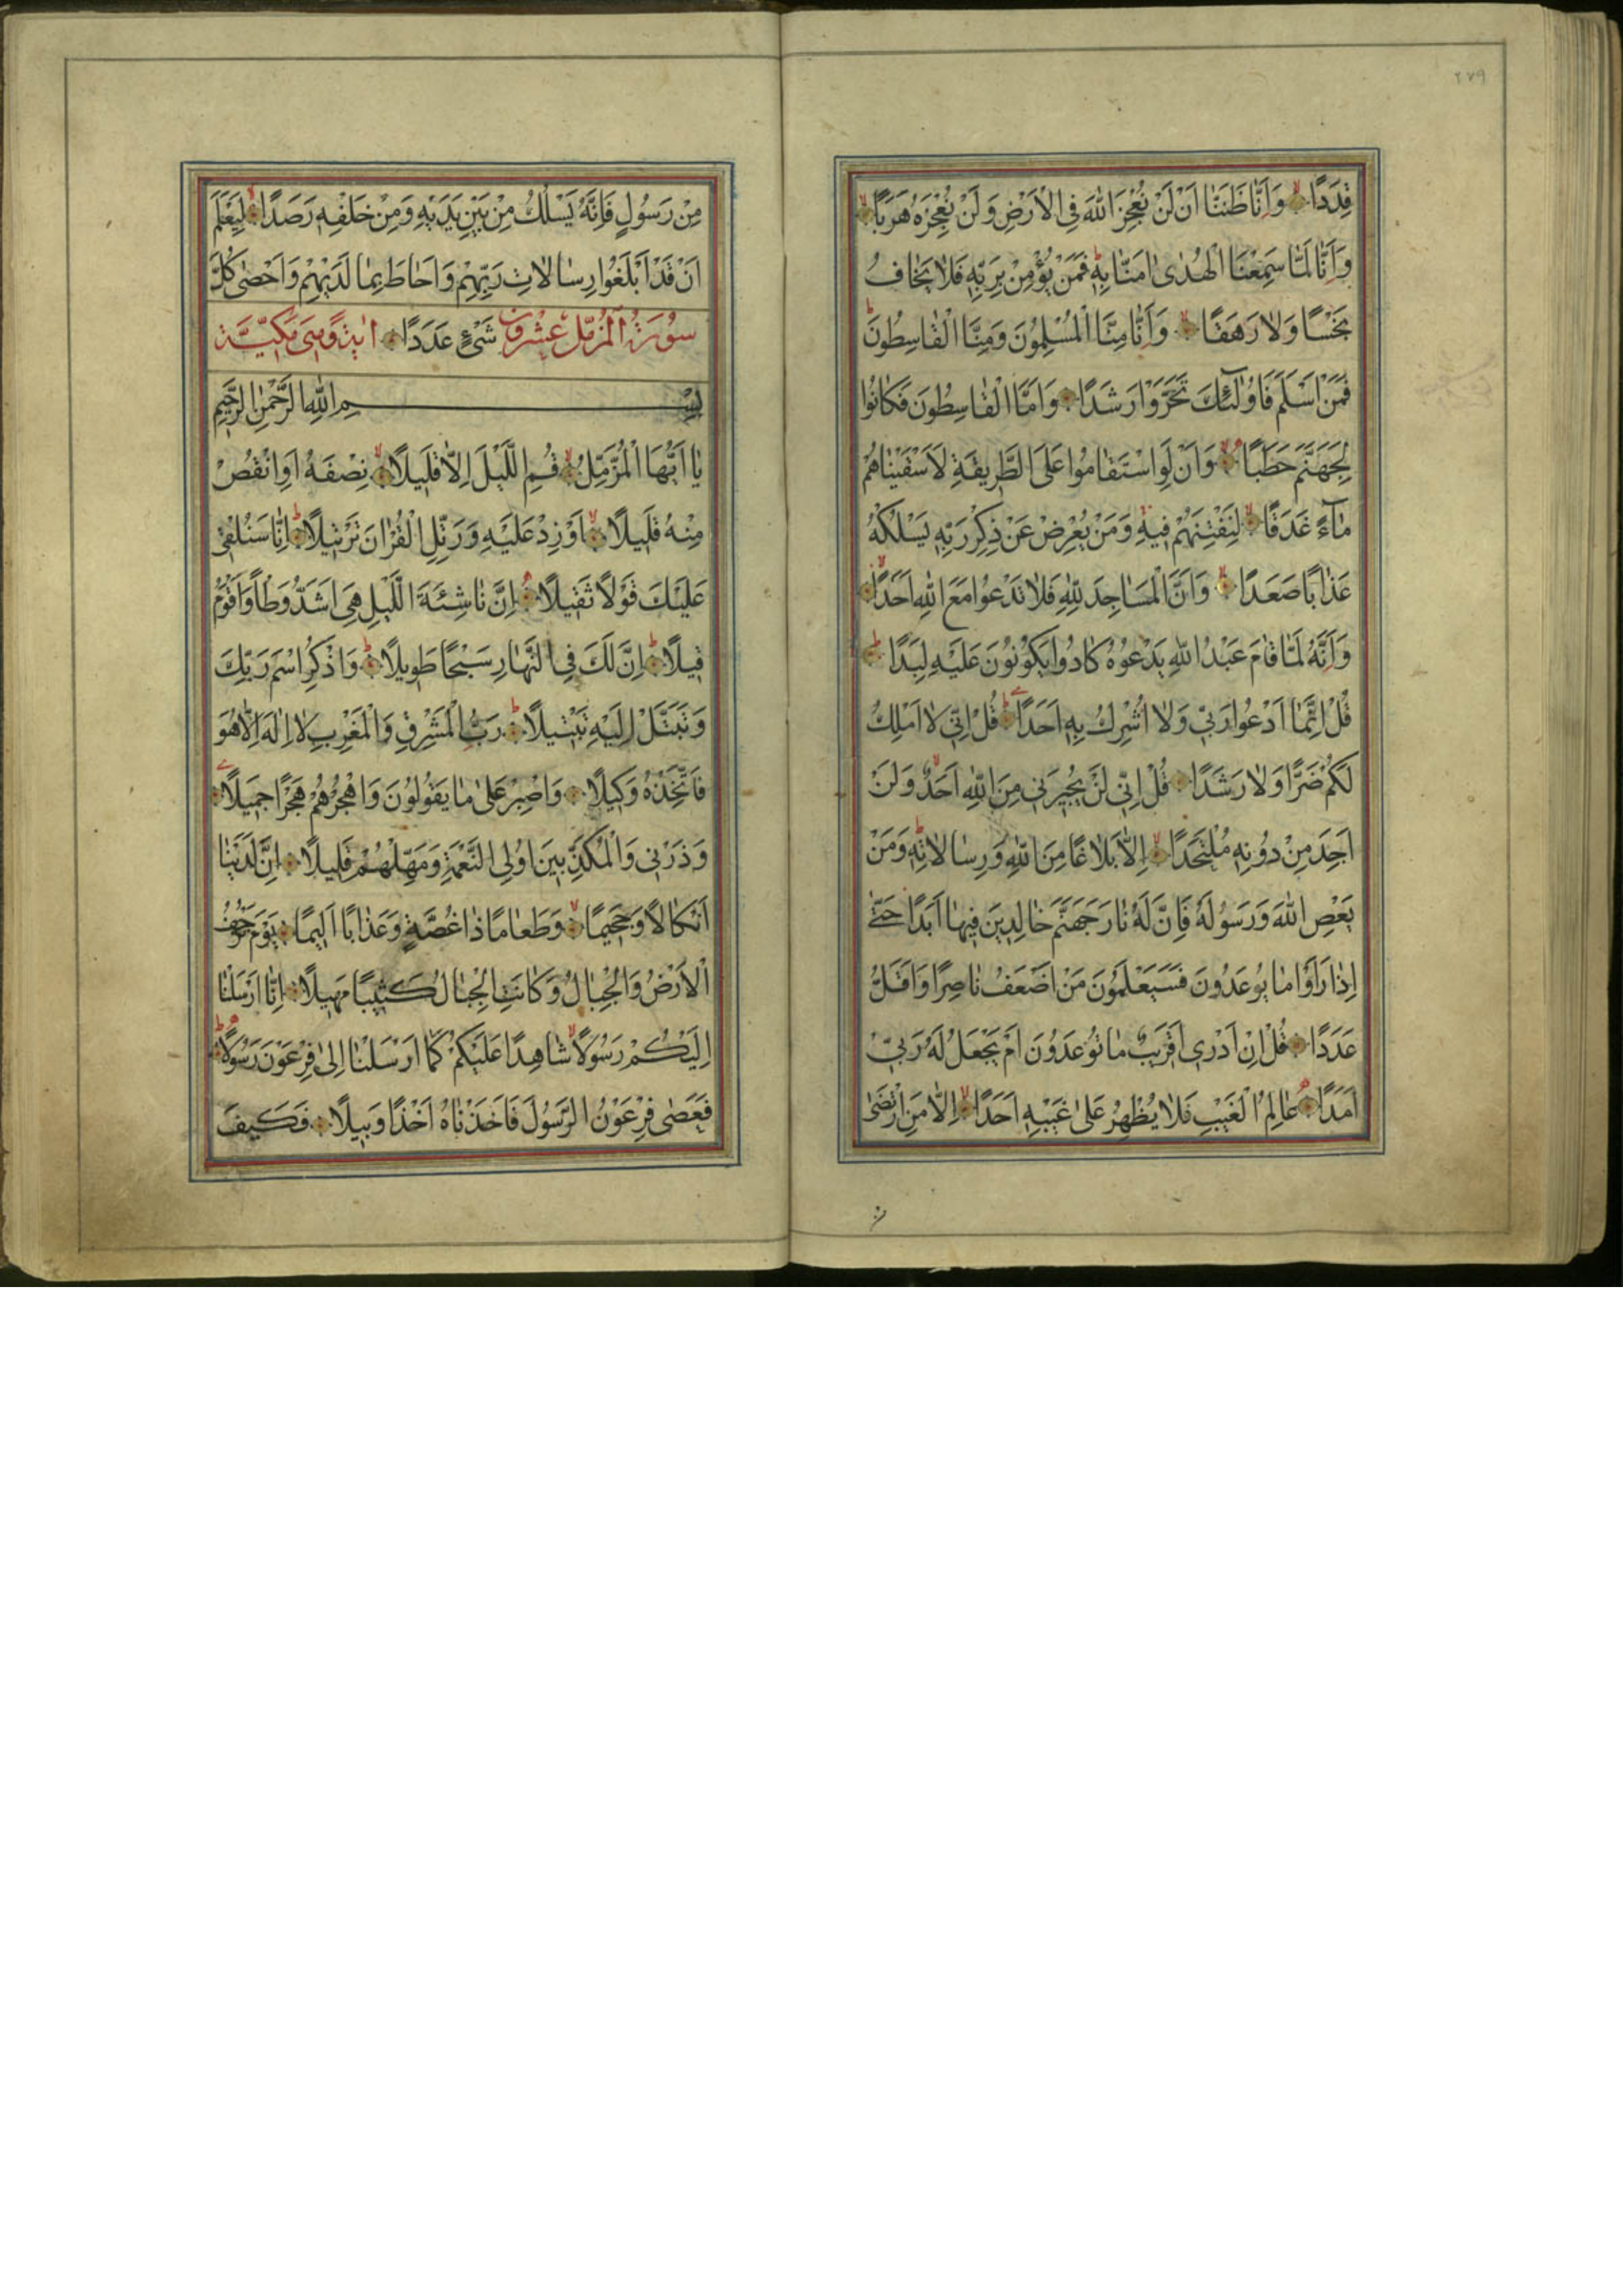 ٢٧٩
قِدَدًا وَاَنَّا ظَنَنَّا اَنْ لَنْ نُعْجِزَ اللّٰهَ فِي الْاَرْضِ وَلَنْ نُعْجِزَهُ هَرَبًا
وَاَنَّا لَمَّا سَمِعْنَا الْهُدٰى اٰمَنَّا بِهِ فَمَنْ يُؤْمِنْ بِرَبِّهِ فَلَا يَخَافُ
بَخْسًا وَلَا رَهَقًا وَاَنَّا مِنَّا الْمُسْلِمُونَ وَمِنَّا الْقَاسِطُونَ
فَمَنْ اَسْلَمَ فَاُولٰئِكَ تَحَرَّوْا رَشَدًا وَاَمَّا الْقَاسِطُونَ فَكَانُوا
لِجَهَنَّمَ حَطَبًا وَاَنْ لَوِ اسْتَقَامُوا عَلَى الطَّرِيقَةِ لَاَسْقَيْنَاهُمْ
مَاءً غَدَقًا لِنَفْتِنَهُمْ فِيهِ وَمَنْ يُعْرِضْ عَنْ ذِكْرِ رَبِّهِ يَسْلُكْهُ
عَذَابًا صَعَدًا وَاَنَّ الْمَسَاجِدَ لِلّٰهِ فَلَا تَدْعُوا مَعَ اللّٰهِ اَحَدًا
وَاَنَّهُ لَمَّا قَامَ عَبْدُ اللّٰهِ يَدْعُوهُ كَادُوا يَكُونُونَ عَلَيْهِ لِبَدًا
قُلْ اِنَّمَا اَدْعُوا رَبِّي وَلَا اُشْرِكُ بِهِ اَحَدًا قُلْ اِنِّي لَا اَمْلِكُ
لَكُمْ ضَرًّا وَلَا رَشَدًا قُلْ اِنِّي لَنْ يُجِيرَنِي مِنَ اللّٰهِ اَحَدٌ وَلَنْ
اَجِدَ مِنْ دُونِهِ مُلْتَحَدًا اِلَّا بَلَاغًا مِنَ اللّٰهِ وَرِسَالَاتِهِ وَمَنْ
يَعْصِ اللّٰهَ وَرَسُولَهُ فَاِنَّ لَهُ نَارَ جَهَنَّمَ خَالِدِينَ فِيهَا اَبَدًا حَتّٰى
اِذَا رَاَوْا مَا يُوعَدُونَ فَسَيَعْلَمُونَ مَنْ اَضْعَفُ نَاصِرًا وَاَقَلُّ
عَدَدًا قُلْ اِنْ اَدْرِي اَقَرِيبٌ مَا تُوعَدُونَ اَمْ يَجْعَلُ لَهُ رَبِّي
اَمَدًا عَالِمُ الْغَيْبِ فَلَا يُظْهِرُ عَلٰى غَيْبِهِ اَحَدًا اِلَّا مَنِ ارْتَضٰى
مِنْ رَسُولٍ فَاِنَّهُ يَسْلُكُ مِنْ بَيْنِ يَدَيْهِ وَمِنْ خَلْفِهِ رَصَدًا لِيَعْلَمَ
اَنْ قَدْ اَبْلَغُوا رِسَالَاتِ رَبِّهِمْ وَاَحَاطَ بِمَا لَدَيْهِمْ وَاَحْصٰى كُلَّ
سُورَةُ الْمُزَّمِّلْ عِشْرُونَ شَيْءٍ عَدَدًا اٰيَةً وَهِيَ مَكِّيَّة
بِسْمِ اللّٰهِ الرَّحْمٰنِ الرَّحِيمِ
يَا اَيُّهَا الْمُزَّمِّلُ قُمِ اللَّيْلَ اِلَّا قَلِيلًا نِصْفَهُ اَوِ انْقُصْ
مِنْهُ قَلِيلًا اَوْ زِدْ عَلَيْهِ وَرَتِّلِ الْقُرْاٰنَ تَرْتِيلًا اِنَّا سَنُلْقِي
عَلَيْكَ قَوْلًا ثَقِيلًا اِنَّ نَاشِئَةَ اللَّيْلِ هِيَ اَشَدُّ وَطْاً وَاَقْوَمُ
قِيلًا اِنَّ لَكَ فِي النَّهَارِ سَبْحًا طَوِيلًا وَاذْكُرِ اسْمَ رَبِّكَ
وَتَبَتَّلْ اِلَيْهِ تَبْتِيلًا رَبُّ الْمَشْرِقِ وَالْمَغْرِبِ لَا اِلٰهَ اِلَّا هُوَ
فَاتَّخِذْهُ وَكِيلًا وَاصْبِرْ عَلٰى مَا يَقُولُونَ وَاهْجُرْهُمْ هَجْرًا جَمِيلًا
وَذَرْنِي وَالْمُكَذِّبِينَ اُولِي النَّعْمَةِ وَمَهِّلْهُمْ قَلِيلًا اِنَّ لَدَيْنَا
اَنْكَالًا وَجَحِيمًا وَطَعَامًا ذَا غُصَّةٍ وَعَذَابًا اَلِيمًا يَوْمَ تَرْجُفُ
الْاَرْضُ وَالْجِبَالُ وَكَانَتِ الْجِبَالُ كَثِيبًا مَهِيلًا اِنَّا اَرْسَلْنَا
اِلَيْكُمْ رَسُولًا شَاهِدًا عَلَيْكُمْ كَمَا اَرْسَلْنَا اِلٰى فِرْعَوْنَ رَسُولًا
فَعَصٰى فِرْعَوْنُ الرَّسُولَ فَاَخَذْنَاهُ اَخْذًا وَبِيلًا فَكَيْفَ